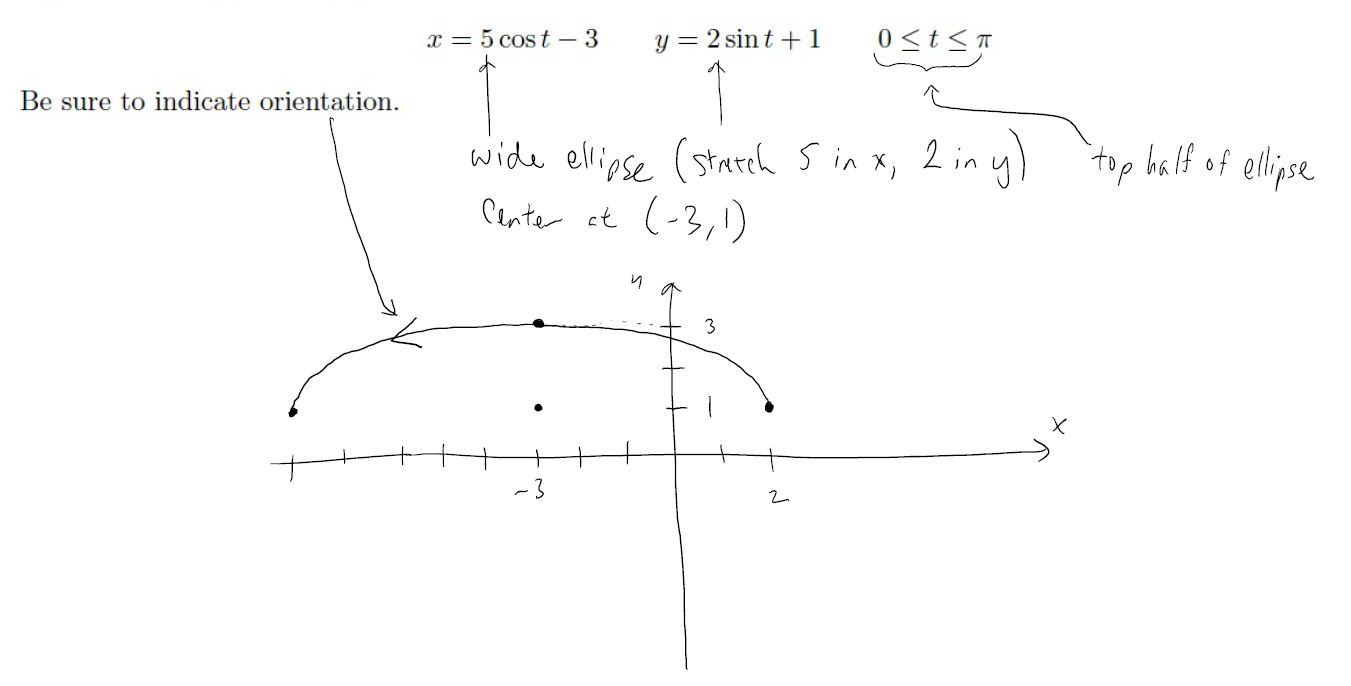 x = 5 cos t − 3 y = 2 sin t + 1 0 ≤ t ≤ π
Be sure to indicate orientation.
wide ellipse (stretch 5 in x, 2 in y) top half of ellipse
Center at (-3,1)
y
3
1
x
-3 2